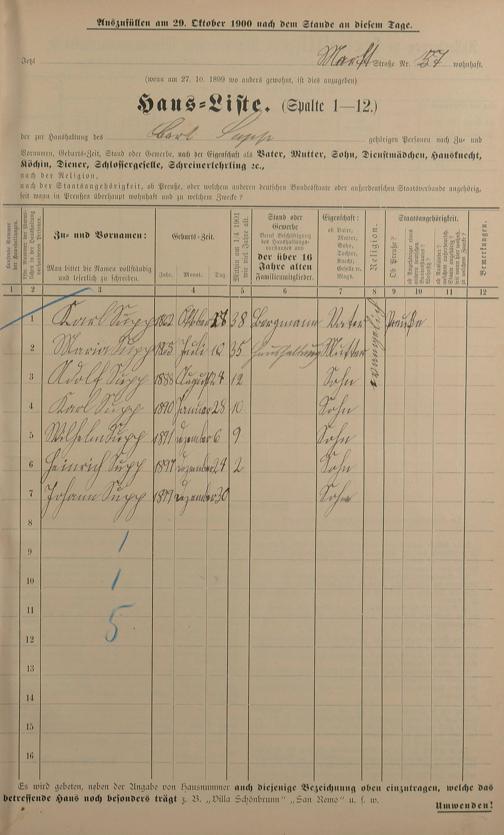 Auszufüllen am 29. Oktober 1900 nach dem Stande an diesem Tage.
Jetzt Markt Straße Nr. 57 wohnhaft.
(wenn am 27. 10. 1899 wo anders gewohnt, ist dies anzugeben)
Haus-Liste. (Spalte 1—12.)
der zur Haushaltung des Carl Supp gehörigen Personen nach Zu- und
Vornamen, Geburts-Zeit, Stand oder Gewerbe, nach der Eigenschaft als Vater, Mutter, Sohn, Dienstmädchen, Hausknecht,
Köchin, Diener, Schlossergeselle, Schreinerlehrling ec.,
nach der Religion,
nach der Staatsangehörigkeit, ob Preuße, oder welchem anderen deutschen Bundesstaate oder außerdeutschen Staatsverbande angehörig,
seit wann in Preußen überhaupt wohnhaft und zu welchem Zwecke?
Zu- und Vornamen:
Man bittet die Namen vollständig
und leserlich zu schreiben.
Geburts-Zeit.
Jahr. Monat. Tag
Stand oder
Gewerbe
der über 16
Jahre alten
Familienmitglieder.
Eigenschaft:
ob Vater,
Mutter,
Sohn,
Tochter,
Knecht,
Geselle o.
Magd.
Religion.
Staatsangehörigkeit.
Ob Preuße?
Bemerkungen.
1 2 3 4 5 6 7 8 9 10 11 12
1 Karl Supp 1862 Oktober 38 Bergmann Vater evangelisch Preuße
2 Maria Supp Juli 10 35 Haushaltung Mutter
3 Adolf Supp 1888 August 24 12 Sohn
4 Karl Supp 1890 Januar 28 10 Sohn
5 Wilhelm Supp 1891 Dezember 6 9 Sohn
6 Heinrich Supp 1897 Dezember 24 2 Sohn
7 Johann Supp 1899 Dezember 30 Sohn
8
9 1
10 1
11 5
12
13
14
15
16
Es wird gebeten, neben der Angabe von Hausnummer auch diejenige Bezeichnung oben einzutragen, welche das
betreffende Haus noch besonders trägt z. B. „Villa Schönbrunn" „San Remo" u. s. w.
Umwenden!